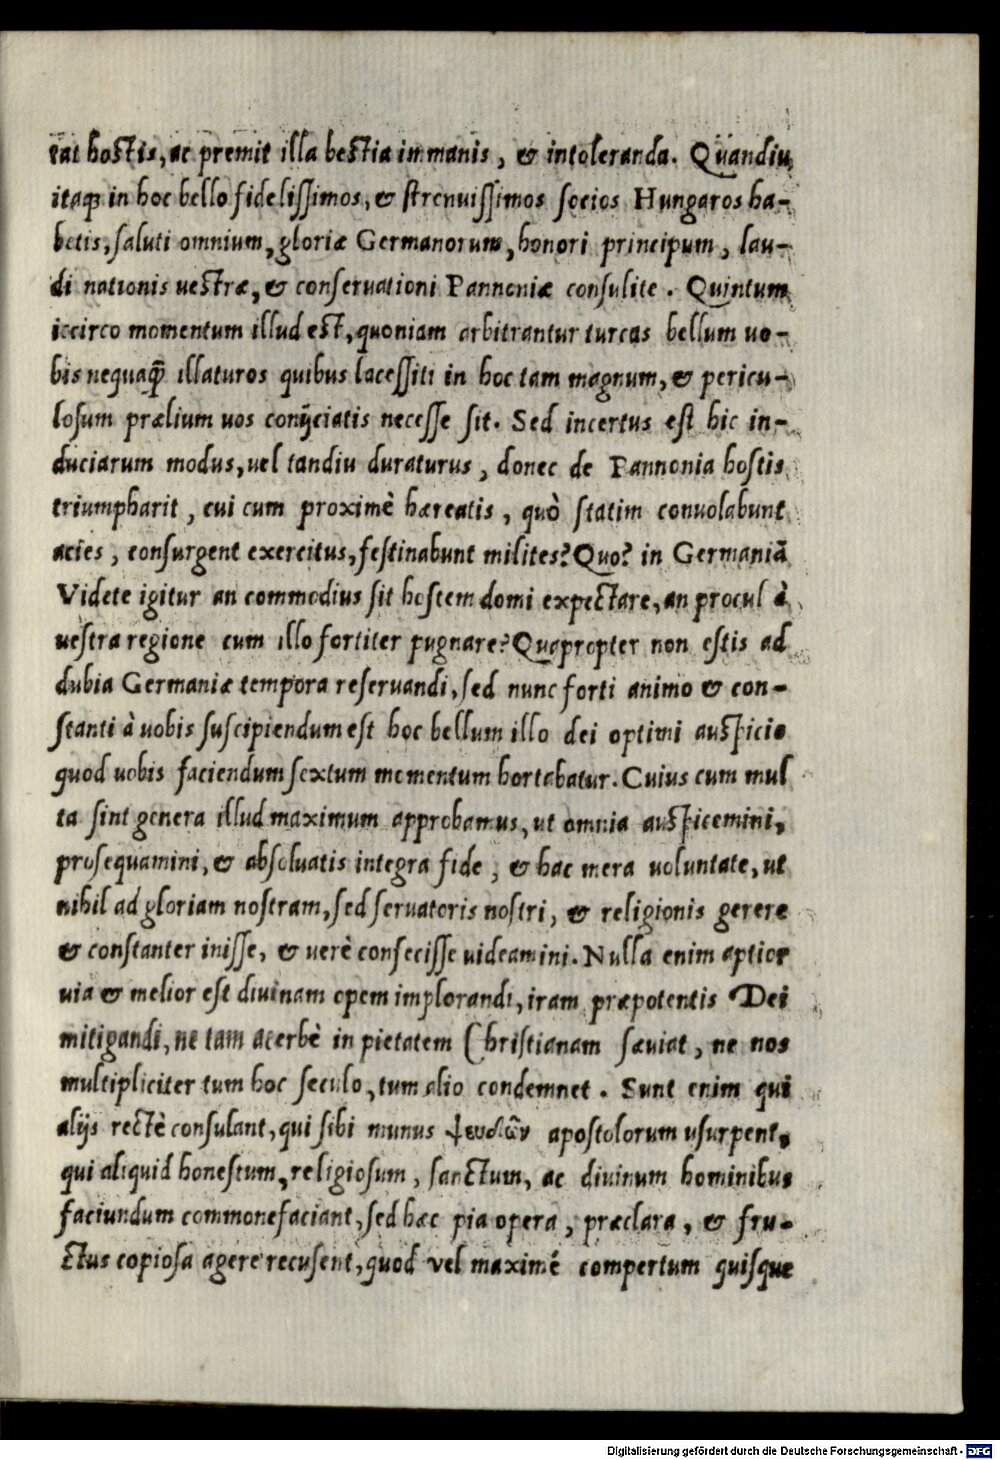 tat hostis, ac premit illa bestia immanis, & intoleranda. Quandiu
itaqꝫ in hoc bello fidelissimos, & strenuissimos socios Hungaros ha-
betis, saluti omnium, gloriæ Germanorum, honori principum, lau-
di nationis uestræ, & conseruationi Pannoniæ consulite. Quintum
iccirco momentum illud est, quoniam arbitrantur turcas bellum uo-
bis nequaqꝫ̃ illaturos quibus lacessiti in hoc tam magnum, & pericu-
losum prælium uos conijciatis necesse sit. Sed incertus est hic in-
duciarum modus, uel tandiu duraturus, donec de Pannonia hostis
triumpharit, cui cum proximè hæreatis, quò statim conuolabunt
acies, consurgent exercitus, festinabunt milites? Quo? in Germaniã
Videte igitur an commodius sit hostem domi expectare, an procul à
uestra regione cum illo fortiter pugnare? Quapropter non estis ad
dubia Germaniæ tempora reseruandi, sed nunc forti animo & con-
stanti à uobis suscipiendum est hoc bellum illo dei optimi auspicio
quod uobis faciendum sextum momentum hortabatur. Cuius cum mul
ta sint genera illud maximum approbamus, ut omnia auspicemini,
prosequamini, & absoluatis integra fide, & hac mera uoluntate, ut
nihil ad gloriam nostram, sed seruatoris nostri, & religionis gerere
& constanter inisse, & uerè confecisse uideamini. Nulla enim aptior
uia & melior est diuinam opem implorandi, iram præpotentis Dei
mitigandi, ne tam acerbè in pietatem Christianam sæuiat, ne nos
multipliciter tum hoc seculo, tum alio condemnet. Sunt enim qui
alijs rectè consulant, qui sibi munus ψευδῶν apostolorum usurpent,
qui aliquid honestum, religiosum, sanctum, ac diuinum hominibus
faciundum commonefaciant, sed hæc pia opera, præclara, & fru-
ctus copiosa agere recusent, quod vel maximé compertum quisque
Digitalisierung gefördert durch die Deutsche Forschungsgemeinschaft - DFG